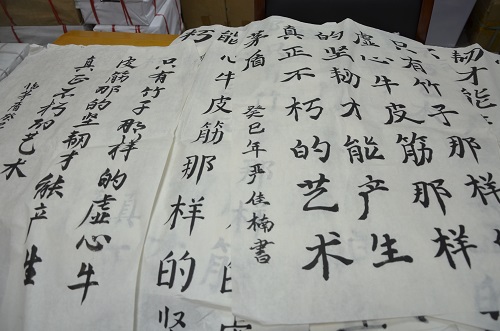 韧才能
只有竹子那样
虚心牛皮筋那样
的坚韧才能产生
真正不朽的艺术
茅盾 癸巳年严佳楠書
能心牛皮筋那样的坚
朽
只有竹子那样的虚心牛
皮筋那的坚韧才能产生
真正不朽的艺术